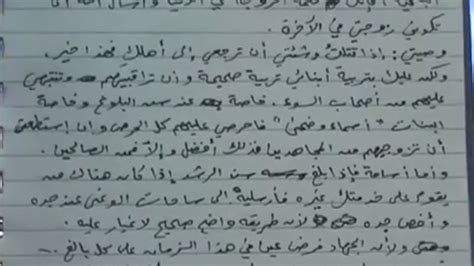 تكوني زوجتي في الآخرة.
وصيتي: إذا قتلت وشئتي أن ترجعي إلى أهلك فهذا خير،
ولكن عليك بتربية أبنائي تربية صحيحة وأن تراقبيهم وتنتبهي
عليهم من أصحاب السوء. خاصة عند سن البلوغ وخاصة
البنات "أسماء وضحى" فاحرصي عليهم كل الحرص وان إستطعتي
أن تزوجيهم من المجاهدين فذلك أفضل وإلا فمن الصالحين.
وأما أسامة فإذا بلغ سن الرشد إذا كان هناك من
يقوم على خدمتك غيره فأرسليه إلى ساحات الوغى عند جده
وأخص جده لأن طريقه واضح صحيح لا غبار عليه.
ولأن الجهاد فرض عين في هذا الزمان على كل بالغ